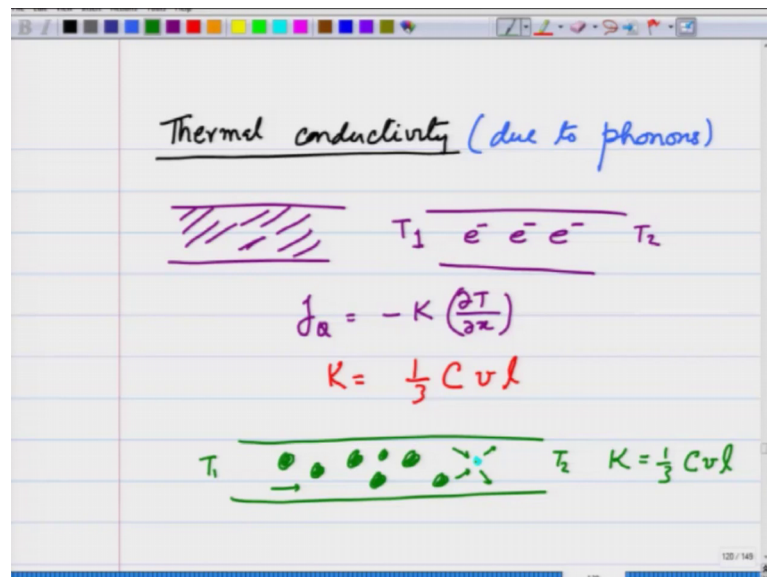 Thermal conductivity (due to phonons)
T1 e⁻ e⁻ e⁻ T2
J_Q = - K (∂T/∂x)
K = 1/3 C v l
T1 T2 K = 1/3 C v l
120 / 148